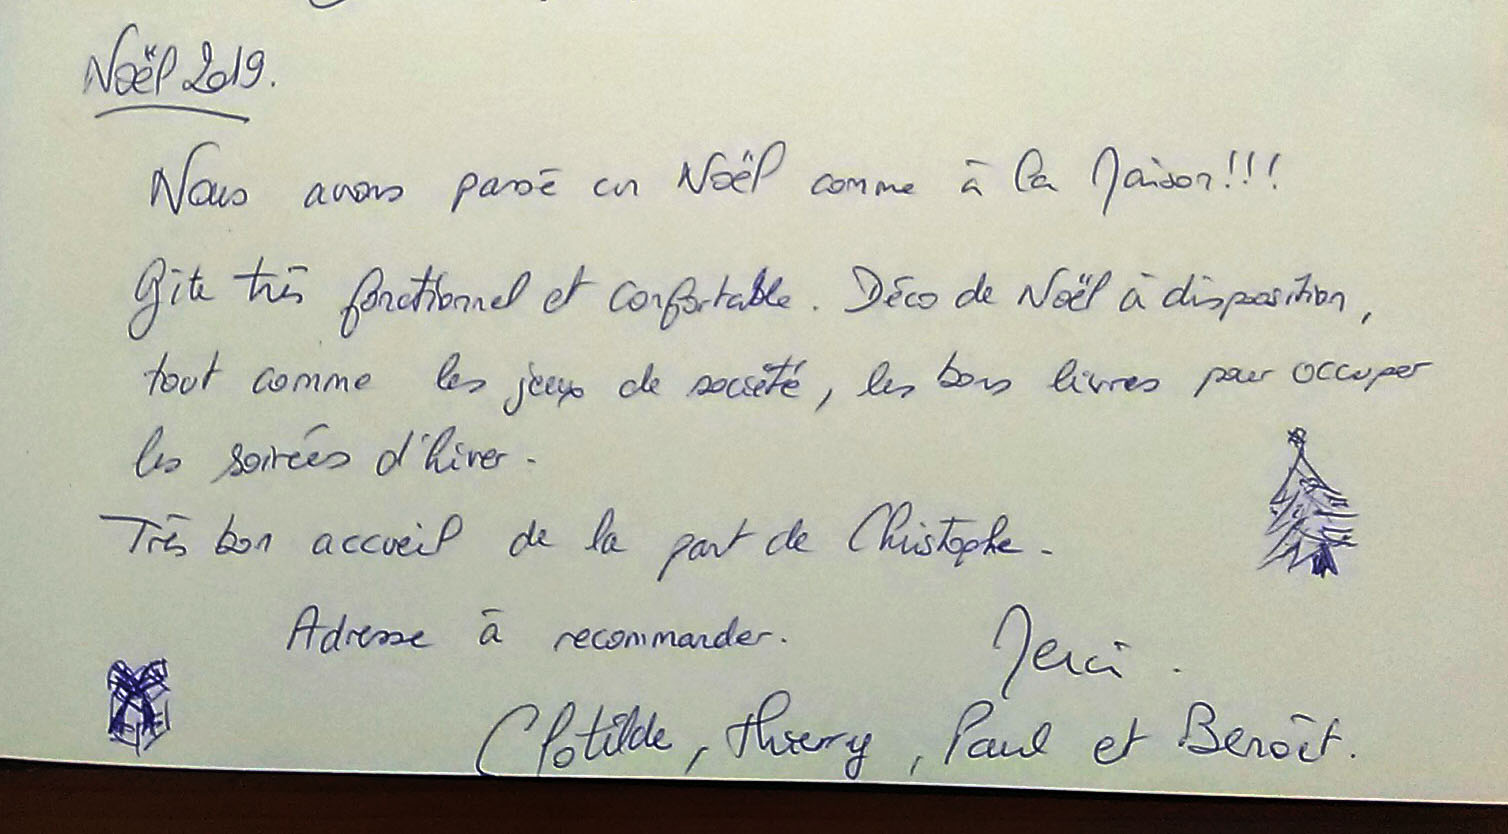 Noël 2019.
Nous avons passé un Noël comme à la Maison!!!
Gîte très fonctionnel et confortable. Déco de Noël à disposition,
tout comme les jeux de société, les bons livres pour occuper
les soirées d'hiver.
Très bon accueil de la part de Christophe.
Adresse à recommander.
Merci.
Clotilde, Thierry, Paul et Benoît.